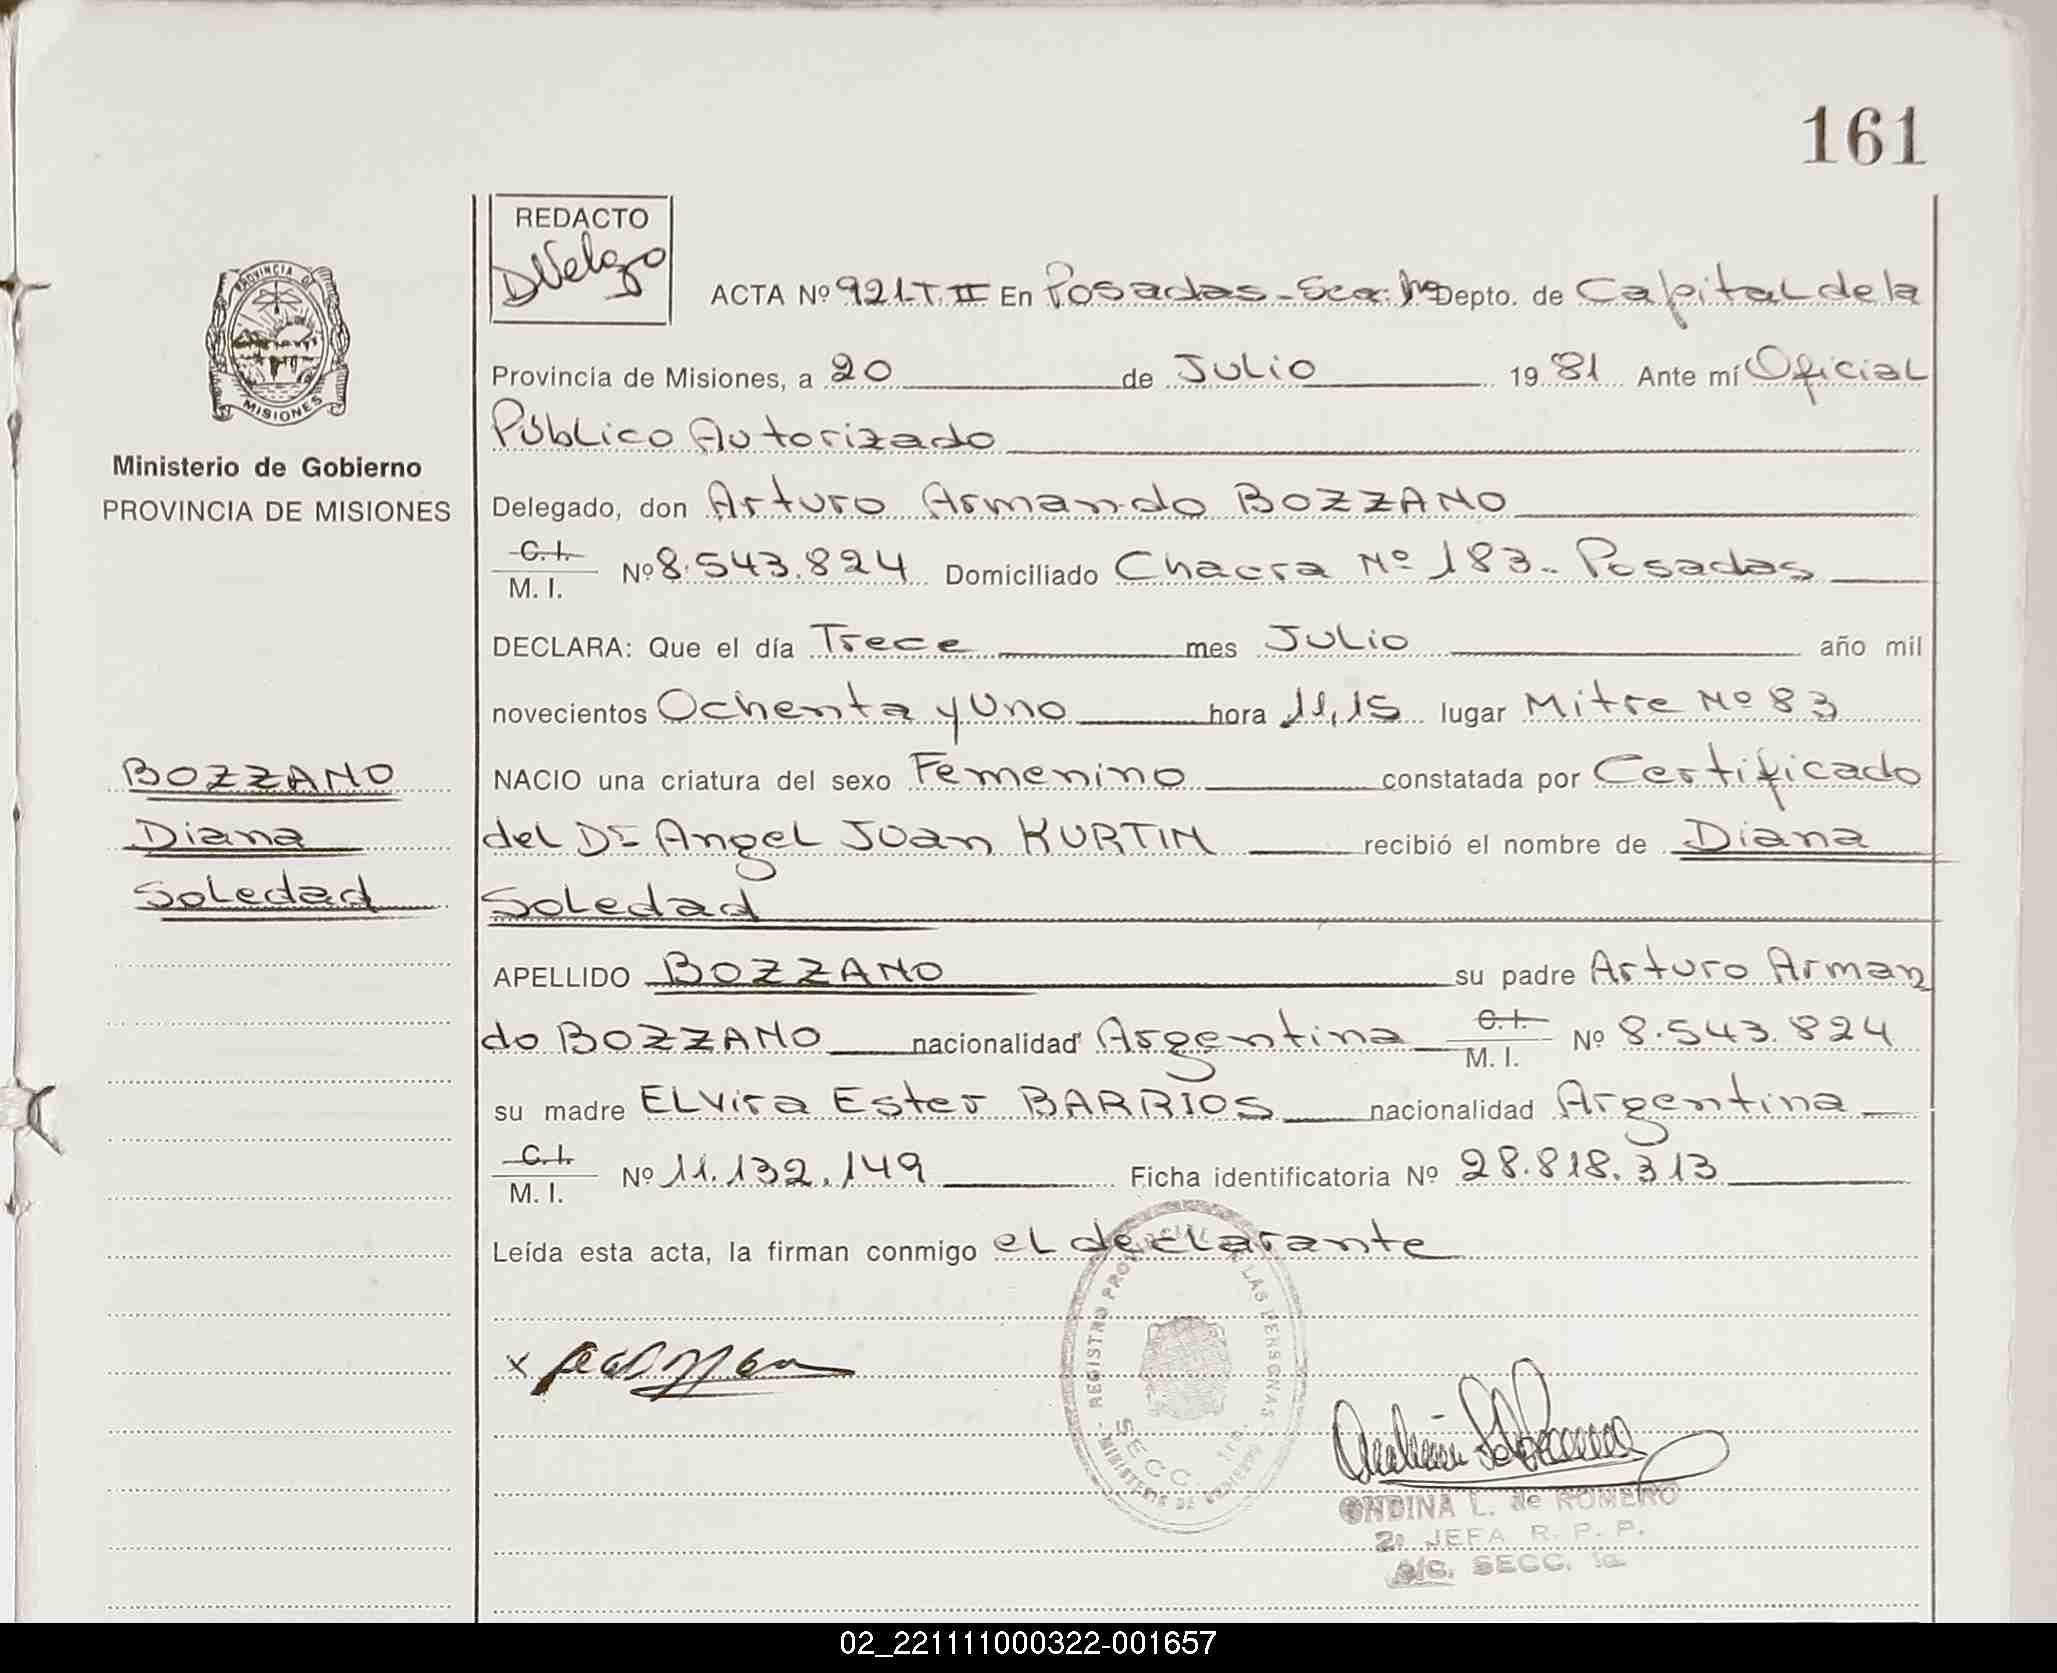 161
REDACTO
PROVINCIA DE
MISIONES
Ministerio de Gobierno
PROVINCIA DE MISIONES
BOZZANO
Diana
Soledad
ACTA Nº 921-T. II En Posadas - Scc. 1ra Depto. de Capital de la
Provincia de Misiones, a 20 de Julio 1981 Ante mí Oficial
Público Autorizado
Delegado, don Arturo Armando BOZZANO
C.I. M. I. Nº 8.543.824 Domiciliado Chacra Nº 183. Posadas
DECLARA: Que el día Trece mes Julio año mil
novecientos Ochenta y Uno hora 11,15 lugar Mitre Nº 83
NACIO una criatura del sexo Femenino constatada por Certificado
del Dr Angel Juan KURTIN recibió el nombre de Diana
Soledad
APELLIDO BOZZANO su padre Arturo Arman
do BOZZANO nacionalidad Argentina C.I. M. I. Nº 8.543.824
su madre Elvira Ester BARRIOS nacionalidad Argentina
C.I. M. I. Nº 11.132.149 Ficha identificatoria Nº 28.818.313
Leída esta acta, la firman conmigo el declarante
x
REGISTRO PROVINCIAL DE LAS PERSONAS
SECC. 1ra.
MINISTERIO DE GOBIERNO
ONDINA L. de ROMERO
2a JEFA R. P. P.
a/c. SECC. 1a
02_221111000322-001657